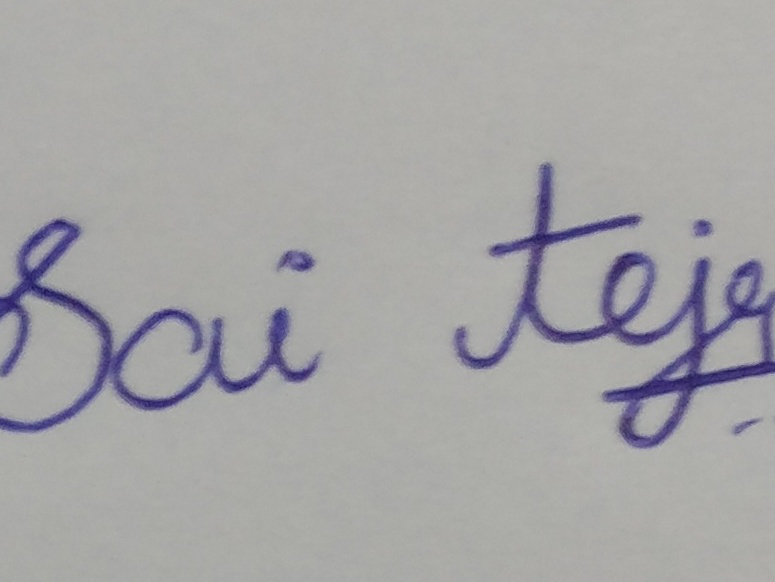 Sai teja